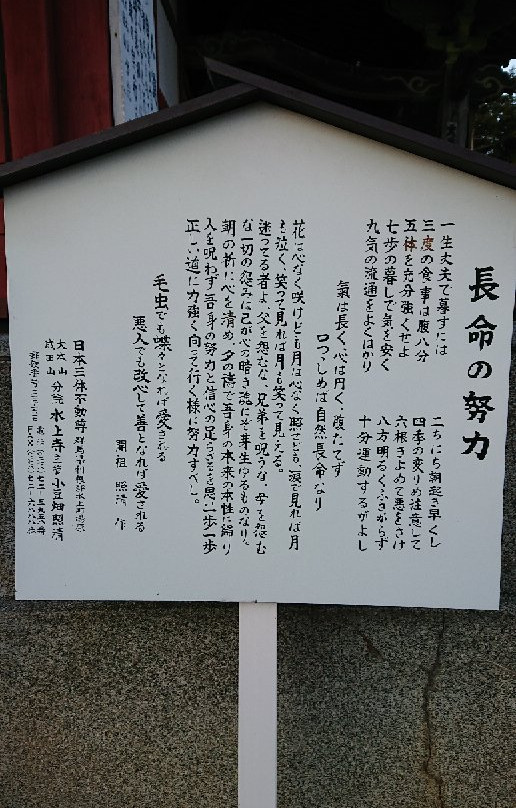 長命の努力
一生丈夫で暮すには
二ちにち朝起き早くし
三度の食事は腹八分
四季の変りめ注意して
五体を充分強くせよ
六根きよめて悪をさけ
七歩の暮しで気を安く
八方明るくふさがらず
九気の流通をよくはかり
十分運動するがよし
氣は長く、心は円く、腹たてず
口つつしめば自然長命なり
花は心なく咲けども月は心なく照せども、涙で見れば月
も泣く、笑って見れば月も笑って見える。
迷ってる者よ、父を怨むな、兄弟を呪うな、母を怨む
な一切の怨みは己が心の暗き流にそ芽生ゆるものなり。
朝の祈に心を清め、夕の祷で吾身の本来の本性に歸り
人を呪わず吾身の努力と信心の足らざるを思、一歩一歩
正い道に力強く向って行く様に努力すべし。
毛虫でも蝶々となれば愛される
悪人でも改心して善となれば愛される
開祖 照清 作
日本三体不動尊 群馬県利根郡水上町湯原
大本山
成田山 分院 水上寺 小豆畑照清